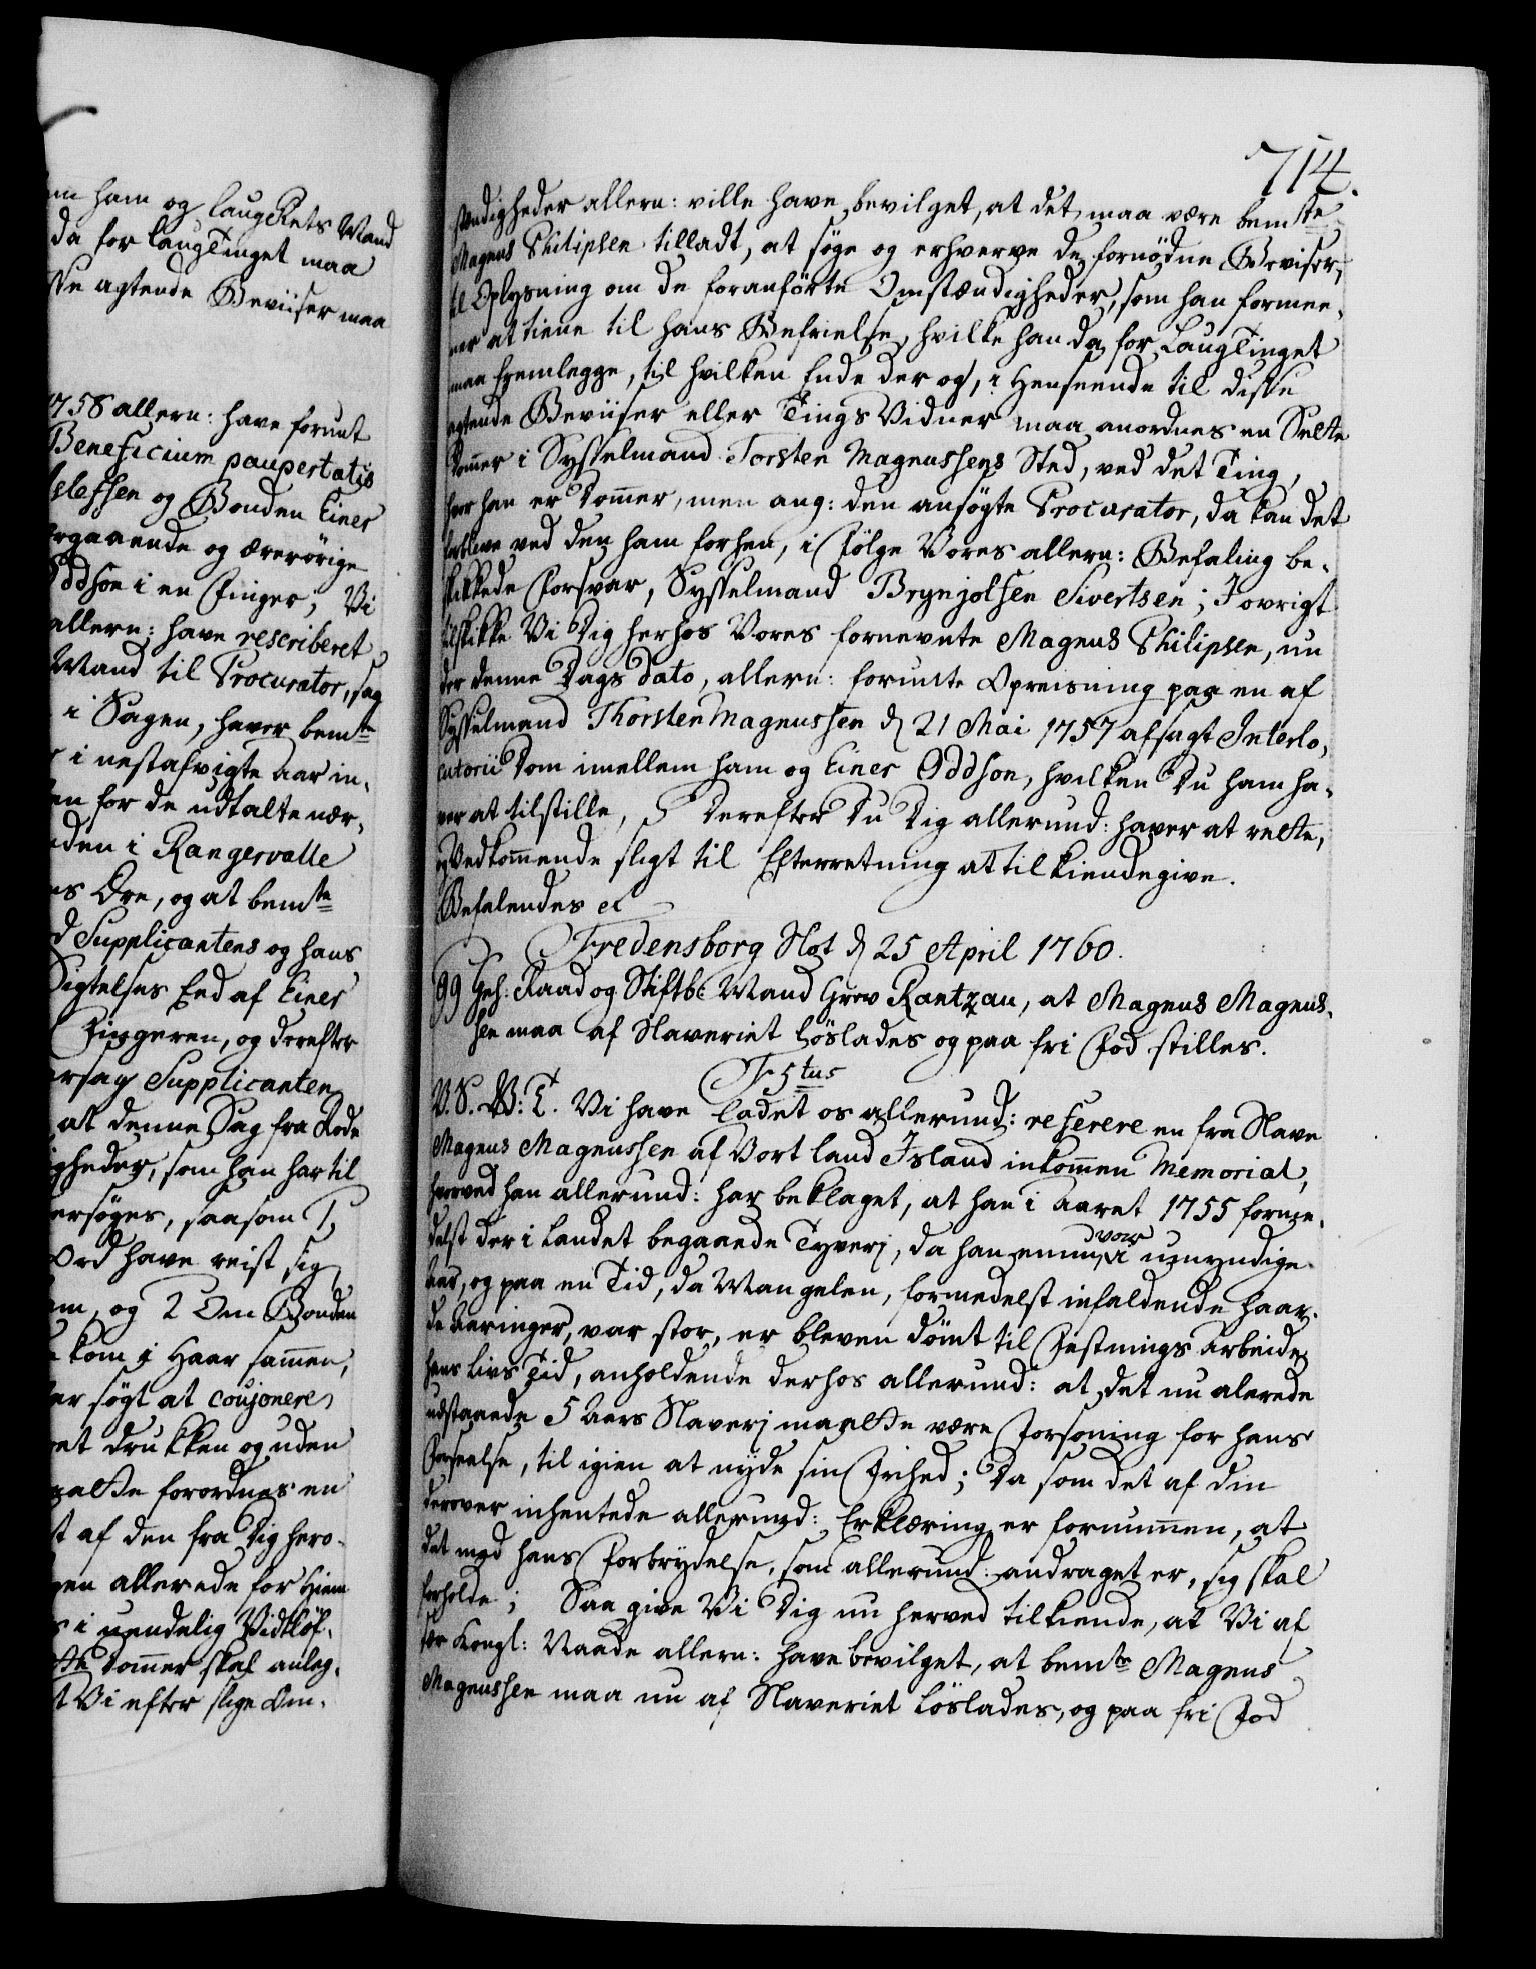 om ham og laugRets Mænd
da for laugTinget maa
agtende Beviiser maa
1758 allern: have forunt
Beneficium paupertatis
slefsen og Bonden Einer
rgaaende og ærerörige
Oddson i en Finger; Vi
allern: have rescriberet
Mand til Procurator, sag
i Sagen, haver bemte
i nestafvigte aar in-
en for de udtalte nær-
den i Rangervalle
ns Öre, og at bemte
d Supplicantens og hans
Sigtelses Eed af Einer
Fingeren, og derefter
rsag Supplicanten
at denne Sag fra Rode
igheder, som han har til
ersøges, saasom 1,
Ord have reist sig
em, og 2 Om Bonden
kom i Haar sammen,
er søgt at coujonere
et drukken og uden
maatte forordnes en
t af den fra Dig hero-
gen allerede for Hiem
s i uendelig Vidtløf-
tte Dommer skal anleg-
t Vi efter slige Om-
714.
stændigheder allern: ville have bevilget, at det maa være bemte
Magnus Philipsen tilladt, at søge og erhverve de fornödne Beviser,
til Oplysning om de foranförte Omstændigheder, som han formee-
ner at tiene til hans Befrielse, hvilke han da for LaugTinget
maa fremlegge, til hvilken Ende der og, i Henseende til disse
agtende Beviiser eller Tings Vidner maa anordnes en Sætte
Dommer i Sysselmand Torsten Magnussens Sted, ved det Ting,
hvor han er Dommer, men ang: den ansøgte Procurator, da kan det
forblive ved den ham forhen, i Følge Vores allern: Befaling be-
skikkede Forsvar, Sysselmand Brynjolfsen Sivertsen; I övrigt
tilskikke Vi Dig herhos Vores fornevnte Magnus Philipsen, un
der denne Dags Dato, allern: forunte Opreisning paa en af
Sysselmand Thorsten Magnussen d 21 Mai 1757 afsagt Interlo-
cutorii Dom imellem ham og Einer Oddson, hvilken Du ham ha-
ver at tilstille, Derefter Du Dig allerund: haver at rette,
og Vedkommende sligt til Efterretning at tilkiendegive.
Befalendes et
Fredensborg Slot d 25 April 1760.
99 Geh: Raad og Stiftbe Mand Grev Rantzau, at Magnus Magnus-
sen maa af Slaveriet löslades og paa fri Fod stilles.
F 5tus
V. S. W: T. Vi have ladet os allerund: referere en fra Slave
Magnus Magnussen af Vort land Island inkommen Memorial,
hvorved han allerund: har beklaget, at han i aaret 1755 forme-
delst der i Landet begaaede Tyveri, da han ennu var i umyndige
Aar, og paa en Tid, da Mangelen, formedelst infaldende haar-
de Aaringer, var stor, er bleven dömt til Festnings Arbeide
hans livs Tid, anholdende derhos allerund: at det nu alerede
udstaaede 5 Aars Slaveri maatte være Forsoning for hans
Forseelse, til igien at nyde sin Frihed; Da som det af din
derover inhentede allerund: Erklæring er fornummen, at
det med hans Forbrydelse, som allerund: andraget er, sig skal
forholde; Saa give Vi Dig nu herved tilkiende, at Vi af
sær Kongl: Naade allern: have bevilget, at bemte Magnus
Magnussen maa nu af Slaveriet löslades, og paa fri Fod